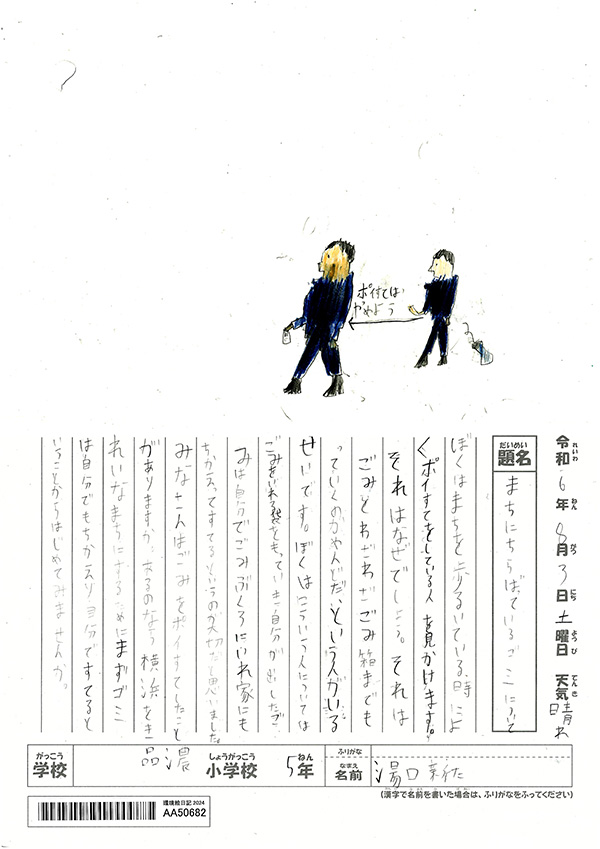 ポイすては
やめよう
令和6年8月3日土曜日 天気 晴れ
れいわ ねん がつ にち ようび てんき
だいめい
題名
まちにちらばっているゴミについて
ぼくはまちを歩るいている時によ
くポイすてをしている人を見かけます。
それはなぜでしょう。それは
ごみをわざわざごみ箱までも
っていくのがめんどだ、という人がいる
せいです。ぼくはこういう人については
ごみをいれる袋をもっていき自分が出したご
みは自分でごみぶくろにいれ家にも
ちかえってすてるというのが大切だと思いました。
みなさんはごみをポイすてしたこと
がありますか。あるのなら横浜をき
れいなまちにするためにまずゴミ
は自分でもちかえり自分ですてると
いうことからはじめてみませんか。
がっこう
学校
品濃
しょうがっこう
小学校
5年
ねん
ふりがな
なまえ
名前
湯口新佐
(漢字で名前を書いた場合は、ふりがなをふってください)
環境絵日記2024
AA50682